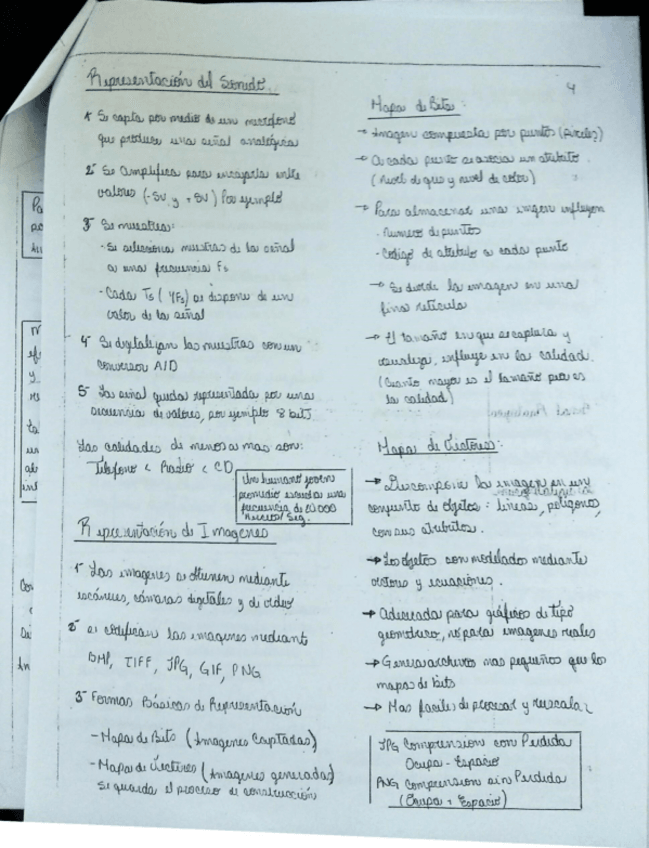 Representación del Sonido
1- Se capta por medio de un micrófono
que produce una señal analógica
2- Se Amplifica para encajarla entre
valores (-5v y +5v) Por ejemplo
3- Se muestrea:
- Se selecciona muestras de la señal
a una frecuencia Fs
- Cada Ts (1/Fs) se dispone de un
valor de la señal
4- Se digitalizan las muestras con un
conversor A/D
5- La señal queda representada por una
secuencia de valores, por ejemplo 8 bits
Las calidades de menos a mas son:
Teléfono < Radio < CD
Un humano joven
promedio escucha una
frecuencia de 20.000
Seg.
Representación de Imagenes
1- Las imagenes se obtienen mediante
escáneres, cámaras digitales y de video
2- se codifican las imagenes mediant
BMP, TIFF, JPG, GIF, PNG
3- Formas Básicas de Representación
- Mapa de Bits (Imagenes Captadas)
- Mapa de Vectores (Imagenes generadas)
Se guarda el proceso de construcción
4
Mapa de Bits:
→ Imagen compuesta por puntos (pixeles)
→ A cada punto se asocia un atributo.
(nivel de gris y nivel de color)
→ Para almacenar una imgen influyen
. Numero de puntos
- Código de atributo a cada punto
→ Se divide la imagen en una
fina retícula
→ El tamaño en que se captura y
visualiza, influye en la calidad.
(Cuanto mayor es el tamaño peor es
la calidad)
Mapa de Vectores:
→ Descompone la imagen en un
conjunto de objetos: lineas, polígonos,
con sus atributos.
→ Los objetos son modelados mediante
vectores y ecuaciones.
→ Adecuada para gráficos de tipo
geometrico, no para imagenes reales
→ Genera archivos mas pequeños que los
mapas de bits
→ Mas faciles de procesar y reescalar
JPG Comprension con Perdida
Ocupa - Espacio
PNG Comprension sin Perdida
(Ocupa + Espacio)